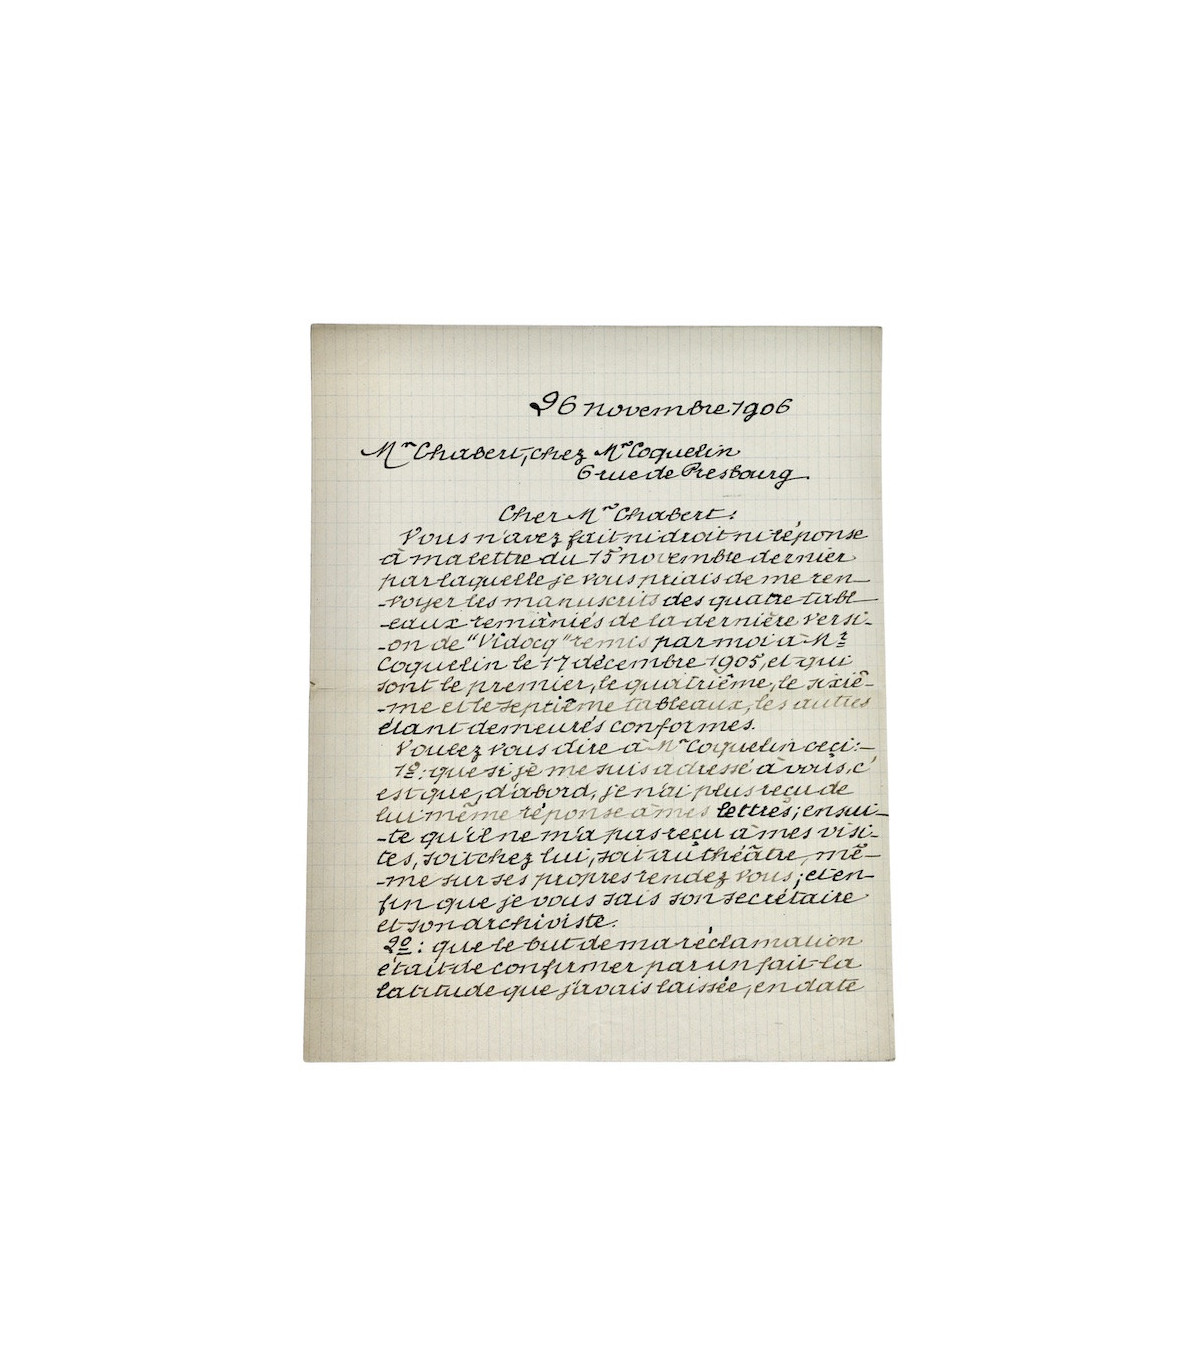 26 novembre 1906
Mr Chabert, chez Mr Coquelin
6 rue de Presbourg.
Cher Mr Chabert:
Vous n'avez fait ni droit ni réponse
à ma lettre du 15 novembre dernier
par laquelle je vous priais de me ren-
-voyer les manuscrits des quatre tabl-
-eaux remàniés de la dernière versi-
-on de "Vidocq" remis par moi à Mr
Coquelin le 17 décembre 1905, et qui
sont le premier, le quatrième, le sixiè-
-me et le septième tableaux, les autres
étant demeurés conformes.
Voulez vous dire à Mr Coquelin ceci:-
1º: que si je me suis adressé à vous, c'
est que, d'abord, je n'ai plus reçu de
lui même réponse à mes lettres; ensui-
-te qu'il ne m'a pas reçu à mes visi-
tes, soit chez lui, soit au théâtre, mê-
-me sur ses propres rendez vous; et en-
fin que je vous sais son secrétaire
et son archiviste.
2º: que le but de ma réclamation
était de confirmer par un fait la
latitude que j'avais laissée, en date